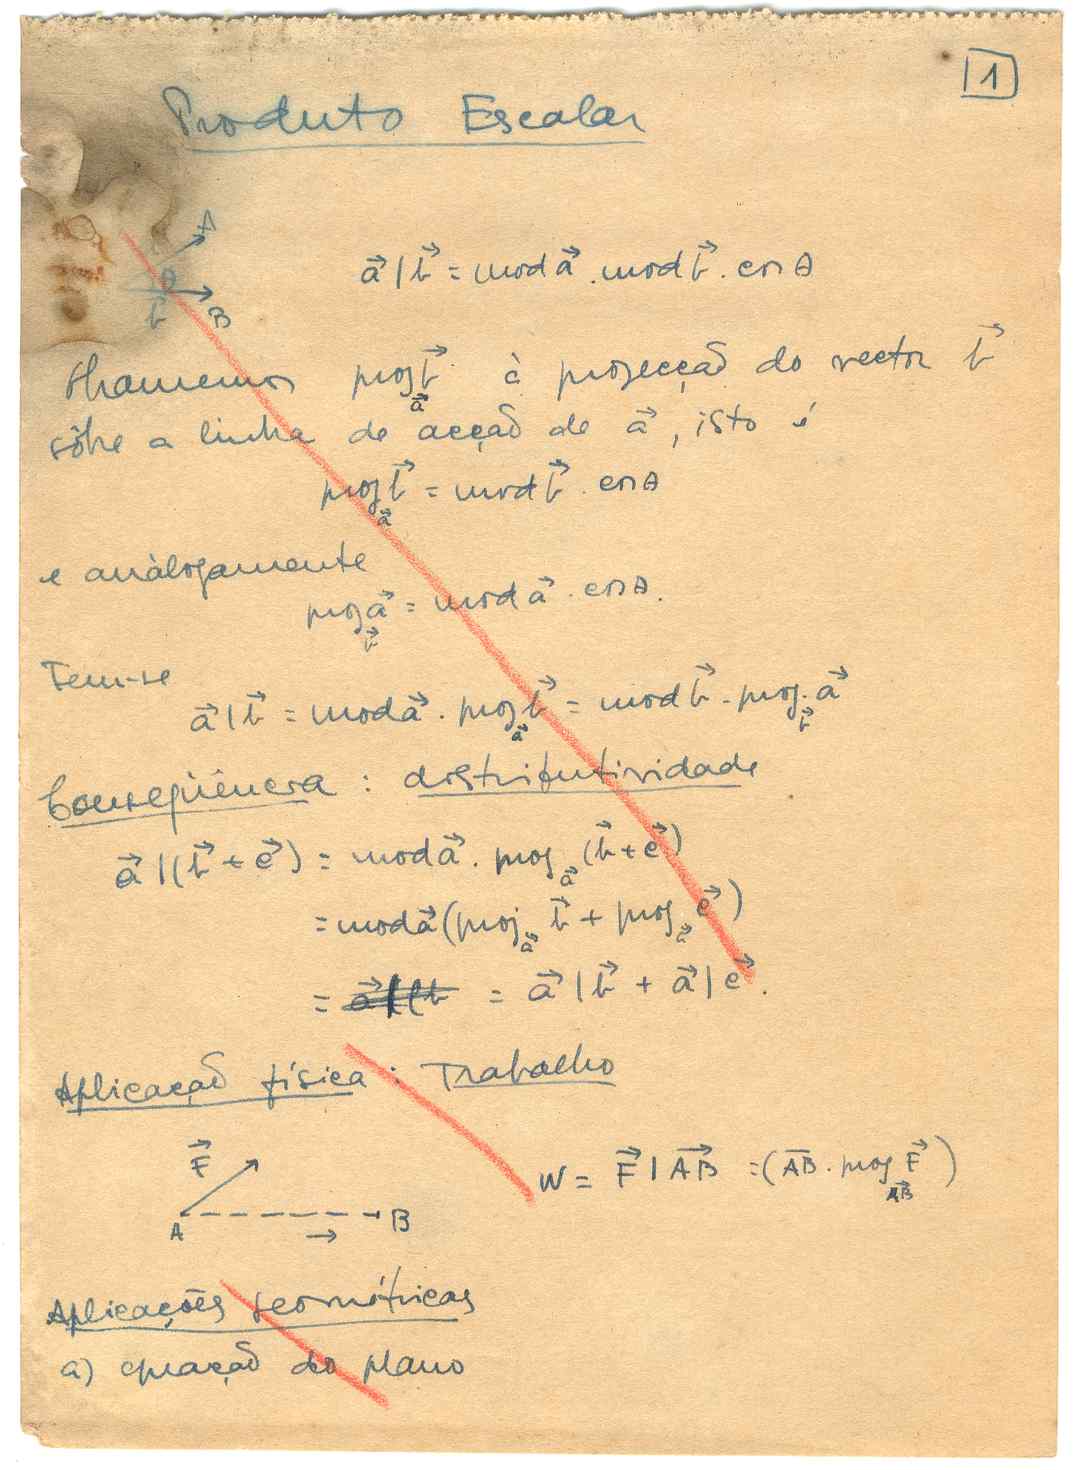 1
Produto Escalar
A
θ
b B
a⃗ | b⃗ = mod a⃗ . mod b⃗ . cos θ
Chamemos proj_a⃗ b⃗ à projecção do vector b⃗
sôbre a linha de acção de a⃗, isto é
proj_a⃗ b⃗ = mod b⃗ . cos θ
e anàlogamente
proj_b⃗ a⃗ = mod a⃗ . cos θ.
Tem-se
a⃗ | b⃗ = mod a⃗ . proj_a⃗ b⃗ = mod b⃗ . proj._b⃗ a⃗
Conseqüência : distributividade
a⃗ | (b⃗ + c⃗) = mod a⃗ . proj_a⃗ (b⃗ + c⃗)
= mod a⃗ (proj_a⃗ b⃗ + proj_a⃗ c⃗)
= a⃗ | (b = a⃗ | b⃗ + a⃗ | c⃗.
Aplicação física : Trabalho
F⃗
W = F⃗ | AB⃗ = (AB . proj_AB⃗ F⃗)
A B
Aplicações geométricas
a) equação do plano